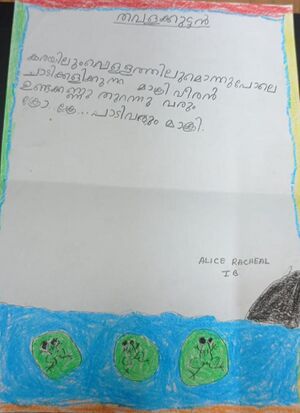 തവളക്കുട്ടൻ
കരയിലുംവെള്ളത്തിലുമൊന്നുപോലെ
ചാടിക്കളിക്കുന്ന മാക്രി വീരൻ
ഉണ്ടക്കണ്ണു തുറന്നു വരും
ക്രോ. ക്രേ... പാടിവരും മാക്രി.
ALICE RACHEAL
I B